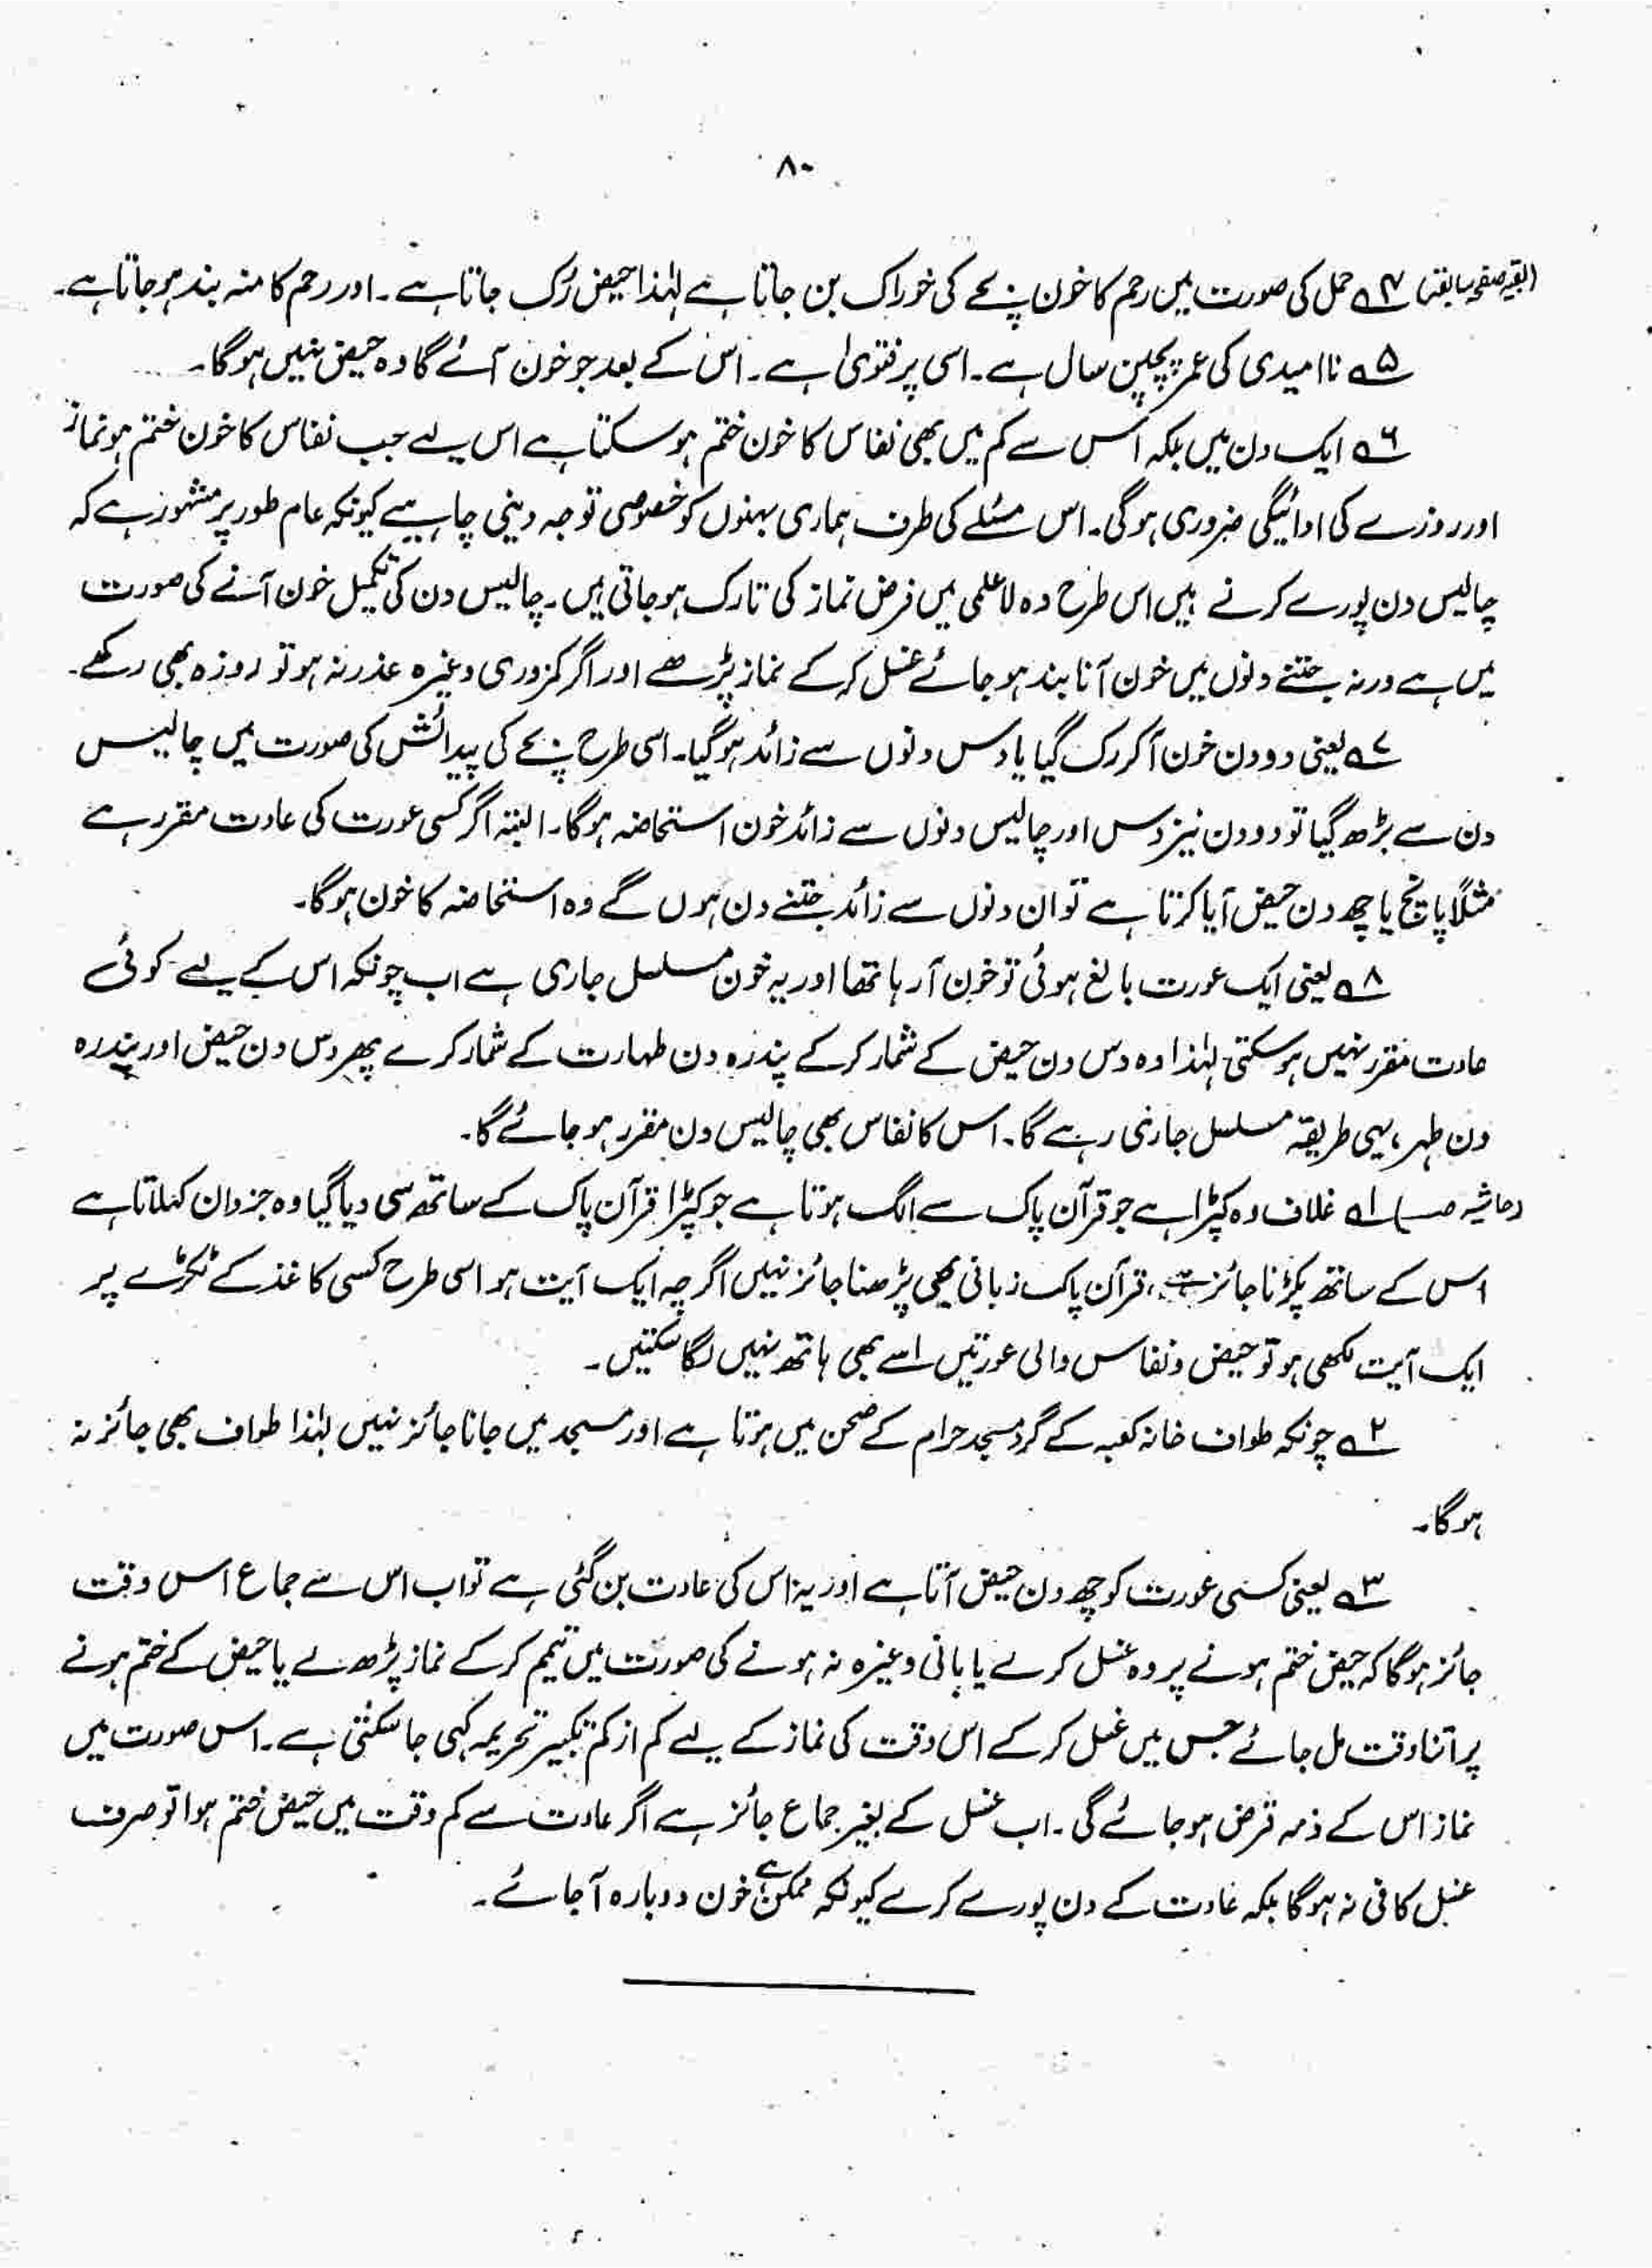 ۸۰
(بقیہ صفحہ سابقہ) ۴؎ حمل کی صورت میں رحم کا خون بچے کی خوراک بن جاتا ہے لہٰذا حیض رُک جاتا ہے۔ اور رحم کا منہ بند ہو جاتا ہے۔
۵؎ ناامیدی کی عمر پچپن سال ہے۔ اسی پر فتویٰ ہے۔ اس کے بعد جو خون آئے گا وہ حیض نہیں ہوگا۔
۶؎ ایک دن میں بلکہ اس سے کم میں بھی نفاس کا خون ختم ہو سکتا ہے اس لیے جب نفاس کا خون ختم ہو نماز
اور روزے کی ادائیگی ضروری ہوگی۔ اس مسئلے کی طرف ہماری بہنوں کو خصوصی توجہ دینی چاہیے کیونکہ عام طور پر مشہور ہے کہ
چالیس دن پورے کرنے ہیں اس طرح وہ لاعلمی میں فرض نماز کی تارک ہو جاتی ہیں۔ چالیس دن کی تکمیل خون آنے کی صورت
میں ہے ورنہ جتنے دنوں میں خون آنا بند ہو جائے غسل کر کے نماز پڑھے اور اگر کمزوری وغیرہ عذر نہ ہو تو روزہ بھی رکھے۔
۷؎ یعنی دو دن خون آ کر رک گیا یا دس دنوں سے زائد ہو گیا۔ اسی طرح بچے کی پیدائش کی صورت میں چالیس
دن سے بڑھ گیا تو دو دن نیز دس اور چالیس دنوں سے زائد خون استحاضہ ہوگا۔ البتہ اگر کسی عورت کی عادت مقرر ہے
مثلاً پانچ یا چھ دن حیض آیا کرتا ہے تو ان دنوں سے زائد جتنے دن ہوں گے وہ استحاضہ کا خون ہوگا۔
۸؎ یعنی ایک عورت بالغ ہوئی تو خون آ رہا تھا اور یہ خون مسلسل جاری ہے اب چونکہ اس کے لیے کوئی
عادت مقرر نہیں ہو سکتی لہٰذا وہ دس دن حیض کے شمار کر کے پندرہ دن طہارت کے شمار کرے پھر دس دن حیض اور پندرہ
دن طہر، یہی طریقہ مسلسل جاری رہے گا۔ اس کا نفاس بھی چالیس دن مقرر ہو جائے گا۔
(حاشیہ ص) ۱؎ غلاف وہ کپڑا ہے جو قرآن پاک سے الگ ہوتا ہے جو کپڑا قرآن پاک کے ساتھ سی دیا گیا وہ جزدان کہلاتا ہے
اس کے ساتھ پکڑنا جائز ہے، قرآن پاک زبانی بھی پڑھنا جائز نہیں اگرچہ ایک آیت ہو اسی طرح کسی کاغذ کے ٹکڑے پر
ایک آیت لکھی ہو تو حیض و نفاس والی عورتیں اسے بھی ہاتھ نہیں لگا سکتیں۔
۲؎ چونکہ طواف خانہ کعبہ کے گرد مسجد حرام کے صحن میں ہوتا ہے اور مسجد میں جانا جائز نہیں لہٰذا طواف بھی جائز نہ
ہوگا۔
۳؎ یعنی کسی عورت کو چھ دن حیض آتا ہے اور یہ اس کی عادت بن گئی ہے تو اب اس سے جماع اس وقت
جائز ہوگا کہ حیض ختم ہونے پر وہ غسل کرے یا پانی وغیرہ نہ ہونے کی صورت میں تیمم کر کے نماز پڑھ لے یا حیض کے ختم ہونے
پر اتنا وقت مل جائے جس میں غسل کر کے اس وقت کی نماز کے لیے کم از کم تکبیر تحریمہ کہی جا سکتی ہے۔ اس صورت میں
نماز اس کے ذمہ قرض ہو جائے گی۔ اب غسل کے بغیر جماع جائز ہے اگر عادت سے کم وقت میں حیض ختم ہوا تو صرف
غسل کافی نہ ہوگا بلکہ عادت کے دن پورے کرے کیونکہ ممکن ہے خون دوبارہ آ جائے۔